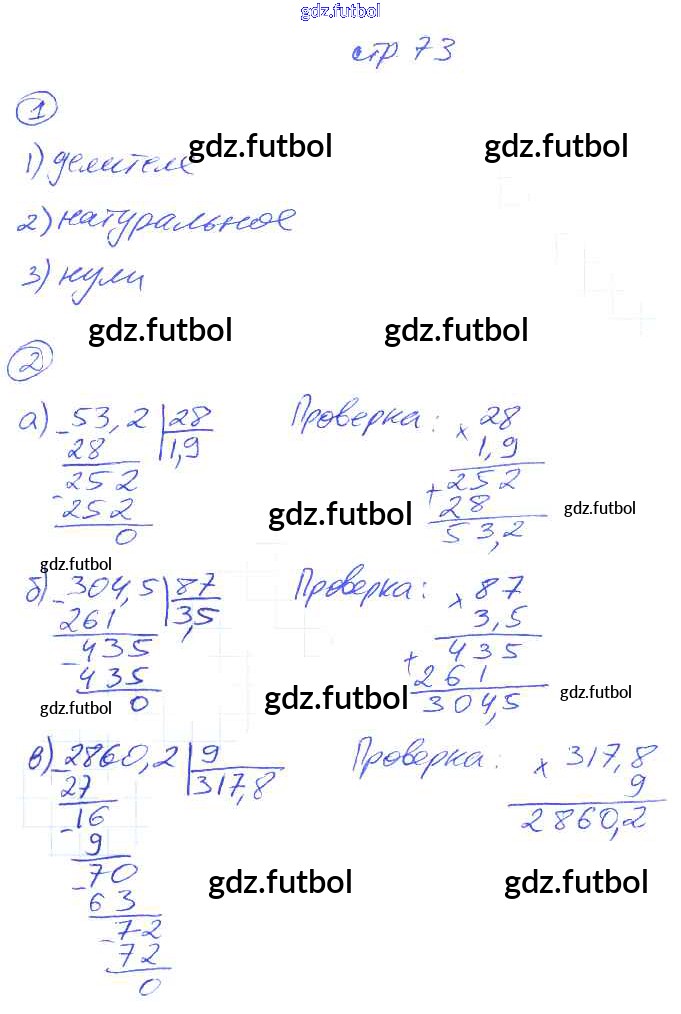 gdz.futbol
стр 73
1
1) делителе gdz.futbol gdz.futbol
2) натуральное
3) нули
gdz.futbol gdz.futbol
2
а) 53,2 | 28 Проверка: × 28
28 1,9 1,9
252 + 252
- 252 28
0 gdz.futbol 53,2 gdz.futbol
gdz.futbol
б) - 304,5 | 87 Проверка: × 87
261 3,5 3,5
- 435 435
435 + 261
gdz.futbol 0 gdz.futbol 304,5 gdz.futbol
в) - 2860,2 | 9 Проверка: × 317,8
27 317,8 9
- 16 2860,2
9
- 70 gdz.futbol gdz.futbol
63
- 72
72
0